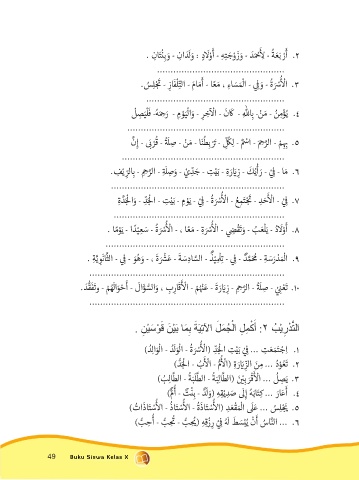 ٢. أَرْبَعَةُ - لِأَحْمَدَ - وَزَوْجَتِهِ - أَوْلَادٍ : وَلَدَانِ - وَبِنْتَانِ .
........................................
٣. الْأُسْرَةُ - وَفِي - الْمَسَاءِ ، مَعًا - أَمَامَ - التِّلْفَازِ - تَجْلِسُ.
........................................
٤. يُؤْمِنُ - مَنْ - بِاللّٰهِ - كَانَ - الْآخِرِ - وَالْيَوْمِ - رَحِمَهُ- فَلْيَصِلْ
........................................
٥. بِهِمْ - الرَّحِمِ - اسْمٌ - لِكُلِّ - تَرْبِطُنَا - مَنْ - صِلَةُ - قُرْبَى - إِنَّ
........................................
٦. مَا - فِيْ - رَأْيُكَ - زِيَارَةِ - بَيْتِ - جَدِّيْ - وَصِلَةِ - الرَّحِمِ - بِالرِّيْفِ.
........................................
٧. فِيْ - الْأَحَدِ - تَجْتَمِعُ - الْأُسْرَةُ - فِيْ - يَوْمِ - بَيْتِ - الْجَدِّ - وَالْجَدَّةِ
........................................
٨. أَوْلَادُ - يَلْعَبُ - وَتَقْضِي - الْأُسْرَةِ - مَعًا ، - الْأُسْرَةُ - سَعِيْدًا - يَوْمًا .
........................................
٩. الْمَدْرَسَةِ - مُحَمَّدٌ - فِي - تِلْمِيْذٌ - السَّادِسَةَ - عَشْرَةَ ، - وَهُوَ - فِي - الثَّانَوِيَّةِ .
........................................
١٠. تَعْنِيْ - صِلَةُ - الرَّحِمِ - زِيَارَةَ - عَنْهُمْ - الْأَقَارِبِ ، وَالسُّؤَالَ - أَحْوَالَهُمْ - وَتَفَقُّدَ.
........................................
التَّدْرِيْبُ ٢: أَكْمِلِ الْجُمَلَ الْآتِيَةَ بِمَا بَيْنَ قَوْسَيْنِ .
١. اِجْتَمَعَتِ ... فِيْ بَيْتِ الْجَدِّ (الْأُسْرَةُ - الْوَلَدُ - الْوَالِدُ)
٢. تَعُوْدُ ... مِنَ الزِّيَارَةِ (الْأُمُّ - الْأَبُ - الْجَدُّ)
٣. يَصِلُ ... الْأَقْرَبِيْنَ (الطَّالِبَةُ - الطَّلَبَةُ - الطَّالِبُ)
٤. أَعَارَ ... كِتَابَهُ إِلَى صَدِيْقِهِ (وَلَدٌ - بِنْتٌ - أُمٌّ)
٥. يَجْلِسُ ... عَلَى الْمَقْعَدِ (الْأُسْتَاذَةُ - الْأُسْتَاذُ - الْأُسْتَاذَاتُ)
٦. ... النَّاسُ أَنْ يُبْسَطَ لَهُ فِيْ رِزْقِهِ (يُحِبُّ - تُحِبُّ - أُحِبُّ)
49 Buku Siswa Kelas X